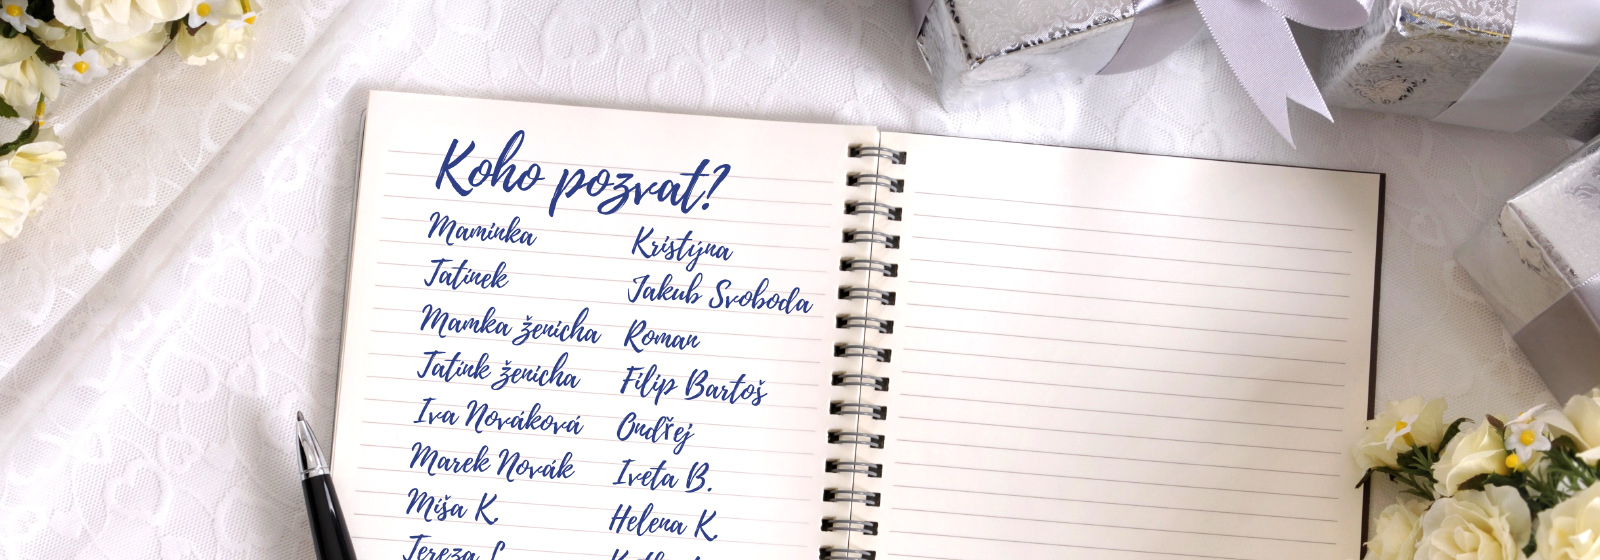 Koho pozvat?
Maminka
Tatínek
Mamka ženicha
Tatínk ženicha
Iva Nováková
Marek Novák
Míša K.
Tereza
Kristýna
Jakub Svoboda
Roman
Filip Bartoš
Ondřej
Iveta B.
Helena K.